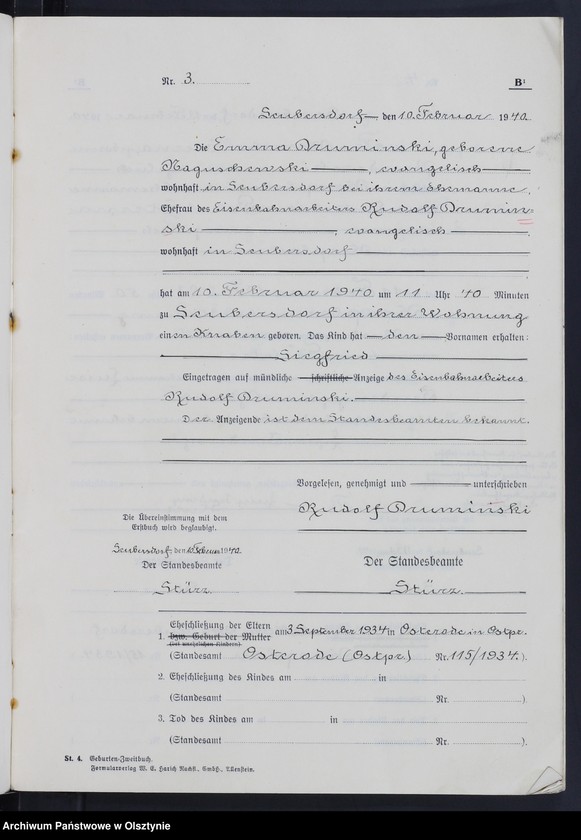 Nr. 3.
B¹
Seubersdorf, den 10. Februar 1940
Die Emma Druminski, geborene
Naguschewski, evangelisch
wohnhaft in Seubersdorf bei ihrem Ehemanne,
Ehefrau des Eisenbahnarbeiters Rudolf Drumin-
ski, evangelisch
wohnhaft in Seubersdorf
hat am 10. Februar 1940 um 11 Uhr 40 Minuten
zu Seubersdorf in ihrer Wohnung
einen Knaben geboren. Das Kind hat den Vornamen erhalten:
Siegfried
Eingetragen auf mündliche schriftliche Anzeige des Eisenbahnarbeiters
Rudolf Druminski.
Der Anzeigende ist dem Standesbeamten bekannt.
Vorgelesen, genehmigt und unterschrieben
Rudolf Druminski
Die Übereinstimmung mit dem
Erstbuch wird beglaubigt.
Seubersdorf, den 10. Februar 1940.
Der Standesbeamte
Stürz.
Der Standesbeamte
Stürz.
1. Eheschließung der Eltern am 3. September 1934 in Osterode in Ostpr.
bzw. Geburt der Mutter
(Standesamt Osterode (Ostpr.) Nr. 115/1934.).
2. Eheschließung des Kindes am in
(Standesamt Nr. ).
3. Tod des Kindes am in
(Standesamt Nr. ).
St. 4. Geburten-Zweitbuch.
Formularverlag W. E. Harich Nachfl., GmbH., Allenstein.
Archiwum Państwowe w Olsztynie